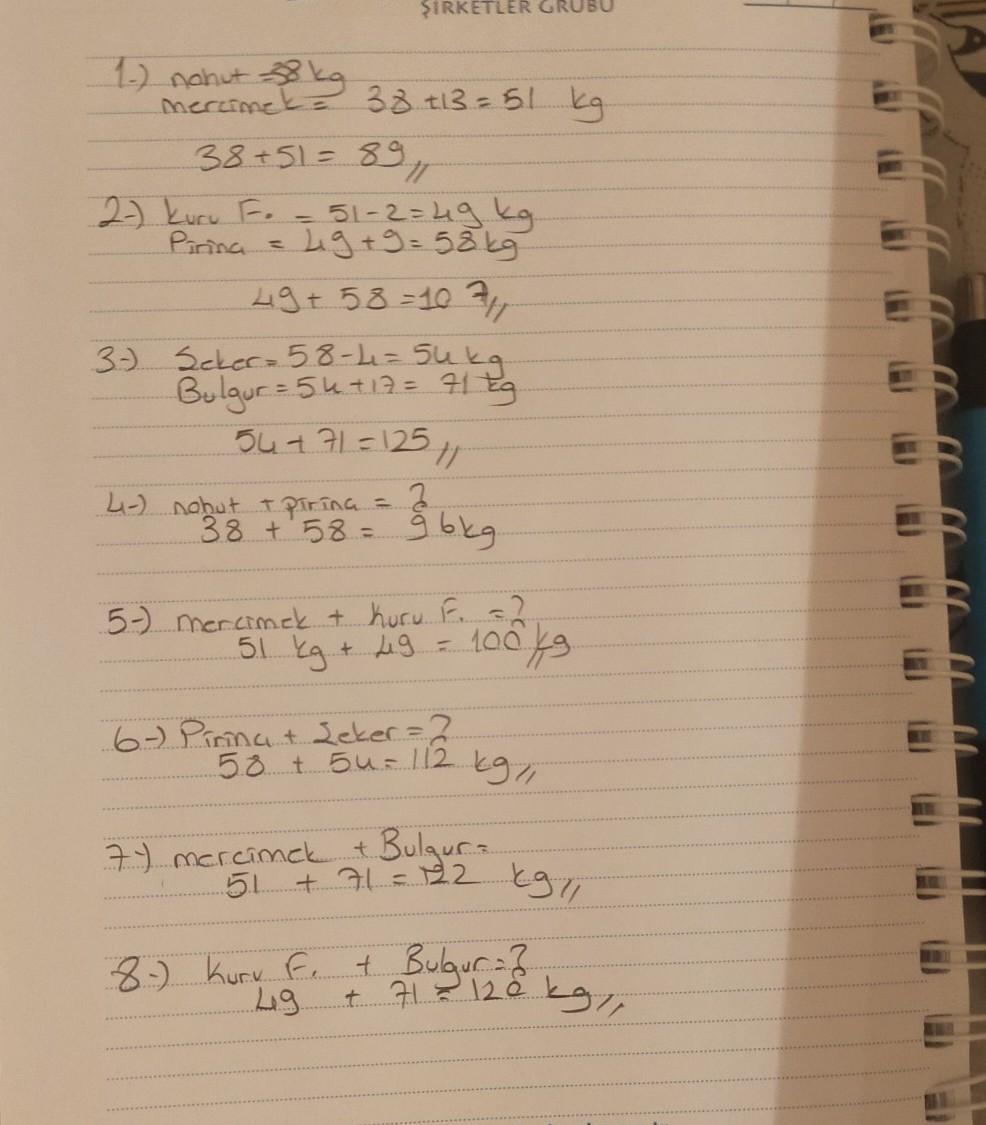 ŞİRKETLER GRUBU
1-) nohut =38 kg
mercimek = 38 +13 = 51 kg
38+51 = 89,,
2-) Kuru F. = 51-2=49 kg
Pirina = 49+9=58kg
49+ 58 =107,,
3-) Seker=58-4=54 kg
Bulgur=54+17= 71 kg
54+71=125,,
4-) nohut + pirina = ?
38 + 58 = 96kg
5-) mercimek + Kuru F. =?
51 kg + 49 = 100 kg,,
6-) Pirina + Seker =?
58 + 54=112 kg,,
7-) mercimek + Bulgur=
51 + 71 = 122 kg,,
8-) Kuru F. + Bulgur=?
49 + 71 = 120 kg,,